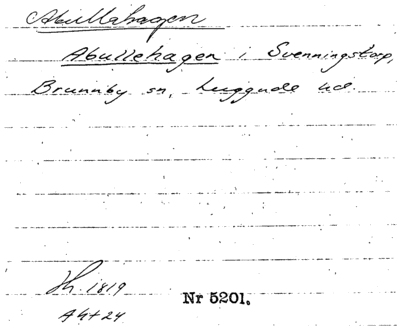 Abullahagen
Abullehagen i Svenningstorp,
Brunnby sn, Luggude hd.
Jh. 1819
Nr 5201.
Aht 24